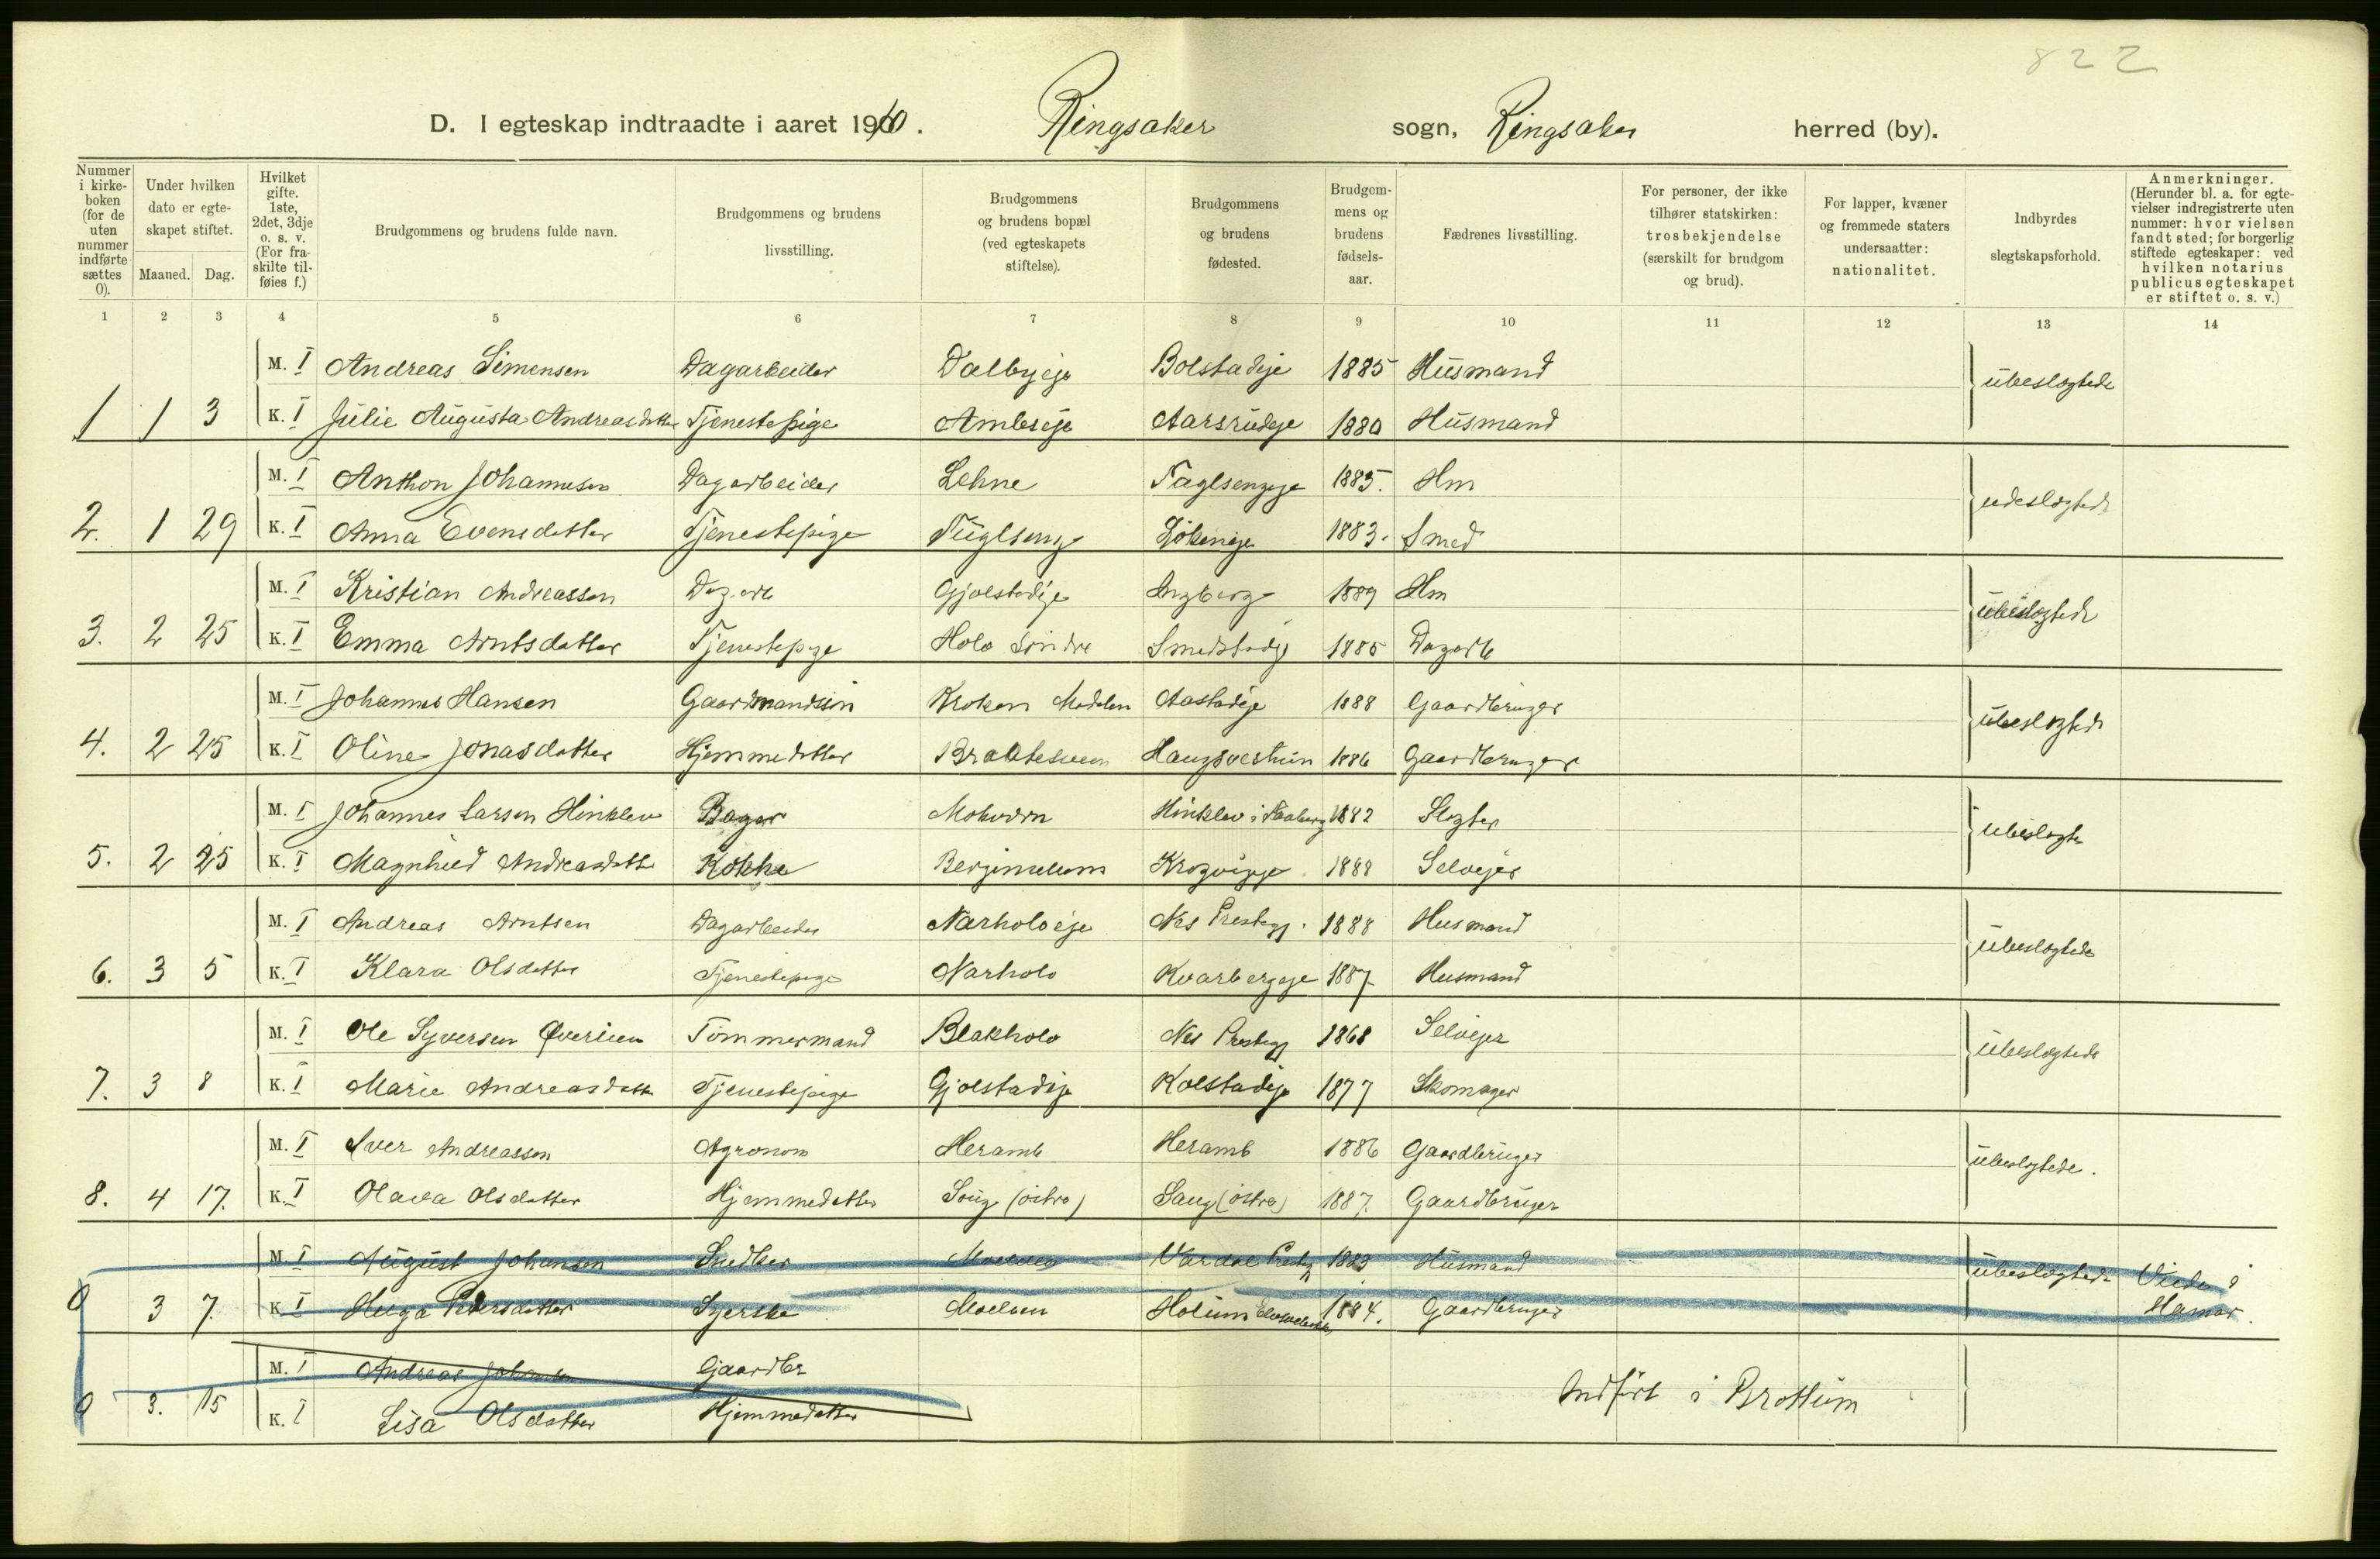 822
D. I egteskap indtraadte i aaret 1910. Ringsaker sogn, Ringsaker herred (by).
Nummer i kirkeboken (for de uten nummer indførte sættes 0).
Under hvilken dato er egteskapet stiftet.
Maaned. Dag.
Hvilket gifte. 1ste, 2det, 3dje o. s. v. (For fraskilte tilføies f.)
Brudgommens og brudens fulde navn.
Brudgommens og brudens livsstilling.
Brudgommens og brudens bopæl (ved egteskapets stiftelse).
Brudgommens og brudens fødested.
Brudgommens og brudens fødselsaar.
Fædrenes livsstilling.
For personer, der ikke tilhører statskirken: trosbekjendelse (særskilt for brudgom og brud).
For lapper, kvæner og fremmede staters undersaatter: nationalitet.
Indbyrdes slegtskapsforhold.
Anmerkninger. (Herunder bl. a. for egtevielser indregistrerte uten nummer: hvor vielsen fandt sted; for borgerlig stiftede egteskaper: ved hvilken notarius publicus egteskapet er stiftet o. s. v.)
1 2 3 4 5 6 7 8 9 10 11 12 13 14
M. I Andreas Simensen Dagarbeider Dalbyeje Bolstadeje 1885 Husmand ubeslægtede
1 1 3 K. I Julie Augusta Andreasdatter Tjenestepige Ambseje Aarsrudeje 1880 Husmand
M. I Anthon Johannesen Dagarbeider Lehne 1885. Hm
2. 1 29 K. I Anna Evensdatter Tjenestepige Fuglseng 1883. Smed
M. I Kristian Andreassen Dagarb Gjølstadeje 1889 Hm ubeslægtede
3. 2 25 K. I Emma Arntsdatter Tjenestepige Holo søndre Smedstadej 1885 Dagarb
M. I Johannes Hansen Gaardmandssøn Kroken Aastadeje 1888 Gaardbruger ubeslægtede
4. 2 25 K. I Oline Jonasdatter Hjemmedatter 1886 Gaardbruger
M. I Johannes Larsen Hinklev Bager Hinklev i Faaberg 1882 Slagter
5. 2 25 K. I Magnhild Andreasdatter Kokke 1888 Selveier
M. I Andreas Arntsen Dagarbeider Narholoeje Nes Prestegj. 1888 Husmand ubeslægtede
6. 3 5 K. I Klara Olsdatter Tjenestepige Narholo Kvarbergeje 1887 Husmand
M. I Ole Syversen Tømmermand Blakholo Nes Prestegj 1868 Selveier ubeslægtede
7. 3 8 K. I Marie Andreasdatter Tjenestepige Gjølstadeje Kolstadeje 1877 Skomager
M. I Iver Andreassen Agronom Heramb Heramb 1886 Gaardbruger ubeslægtede.
8. 4 17. K. I Olava Olsdatter Hjemmedatter Saug (østre) Saug (østre) 1887. Gaardbruger
M. I August Johansen Snedker Moelven Vardal Prestegj 1883 Husmand ubeslægtede Viede i
0 3 7. K. I Helga Pedersdatter Syerske Moelven Holum 1884. Gaardbruger Hamar.
M. I Andreas Johansen Gaardbr
0 3. 15 K. I Lisa Olsdatter Hjemmedatter Indført i Brøttum